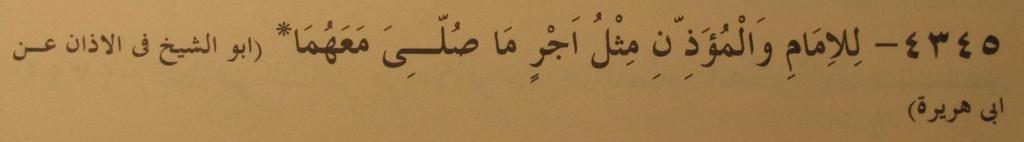 ٤٣٤٥ – لِلاِمَامِ وَالْمُؤَذِّنِ مِثْلُ اَجْرِ مَا صُلِّىَ مَعَهُمَا* (ابو الشيخ فى الاذان عن
ابى هريرة)